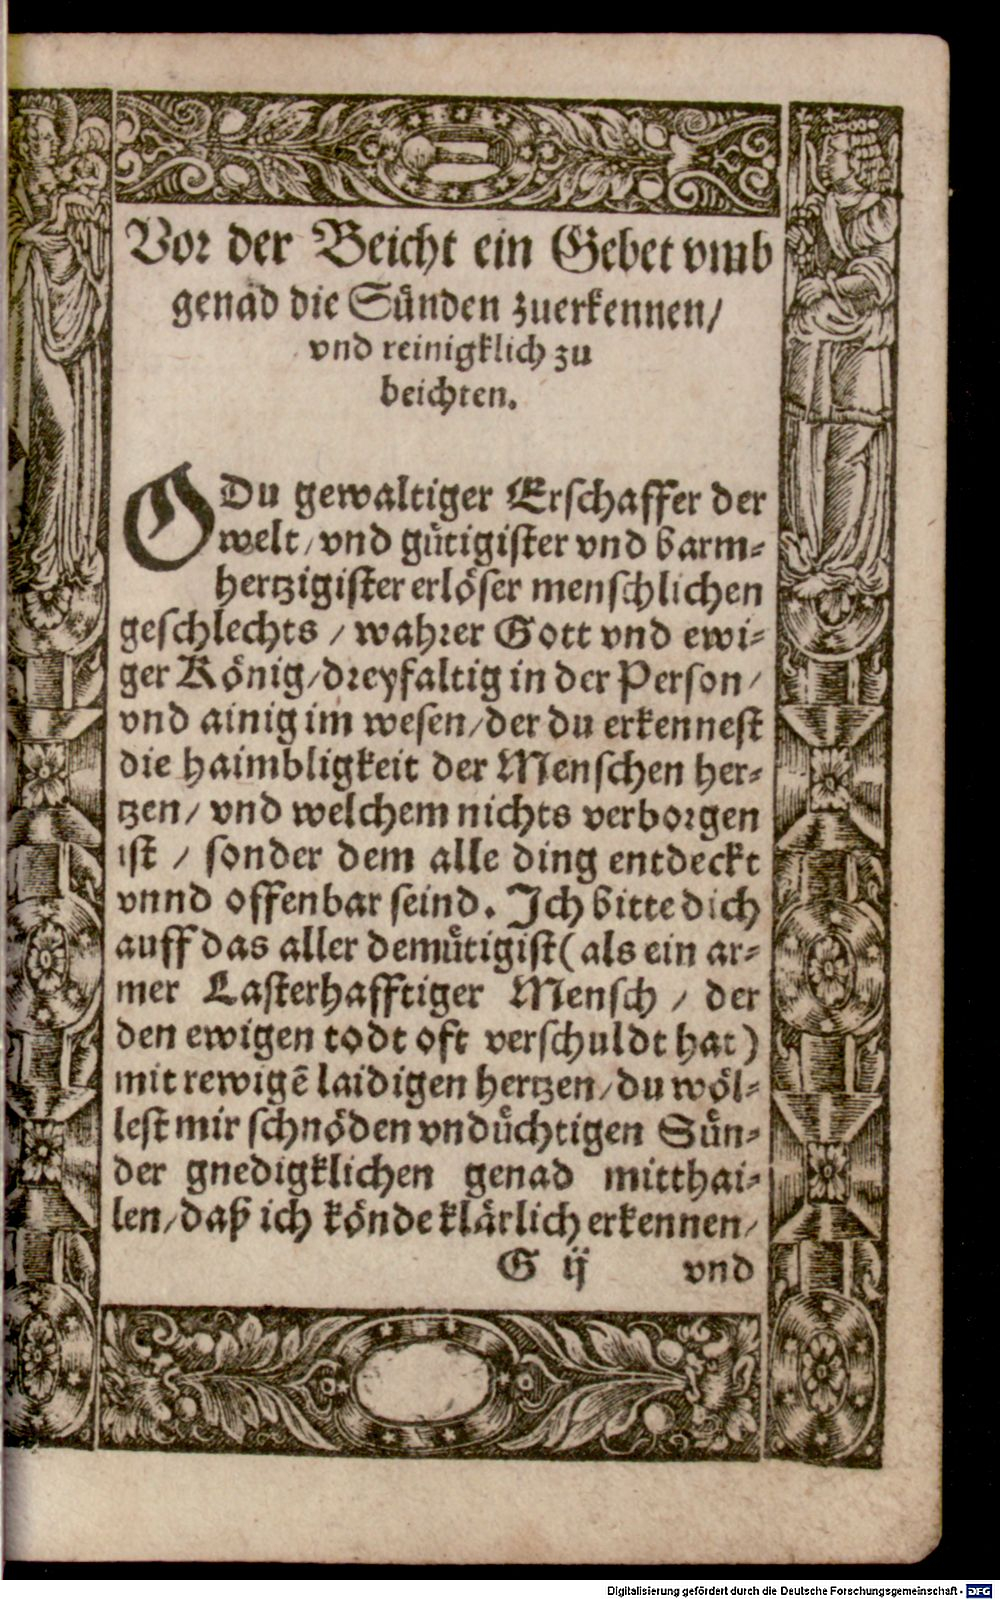 Vor der Beicht ein Gebet vmb
genad die Sünden zuerkennen/
vnd reinigklich zu
beichten.
O Du gewaltiger Erschaffer der
welt/ vnd gütigister vnd barm-
hertzigister erlöser menschlichen
geschlechts / wahrer Gott vnd ewi-
ger König/ dreyfaltig in der Person/
vnd ainig im wesen/ der du erkennest
die haimbligkeit der Menschen her-
tzen/ vnd welchem nichts verborgen
ist / sonder dem alle ding entdeckt
vnnd offenbar seind. Ich bitte dich
auff das aller demütigist (als ein ar-
mer Lasterhafftiger Mensch / der
den ewigen todt oft verschuldt hat)
mit rewigē laidigen hertzen/ du wöl-
lest mir schnöden vndüchtigen Sün-
der gnedigklichen genad mitthai-
len/ daß ich könde klärlich erkennen/
G ij vnd
Digitalisierung gefördert durch die Deutsche Forschungsgemeinschaft - DFG